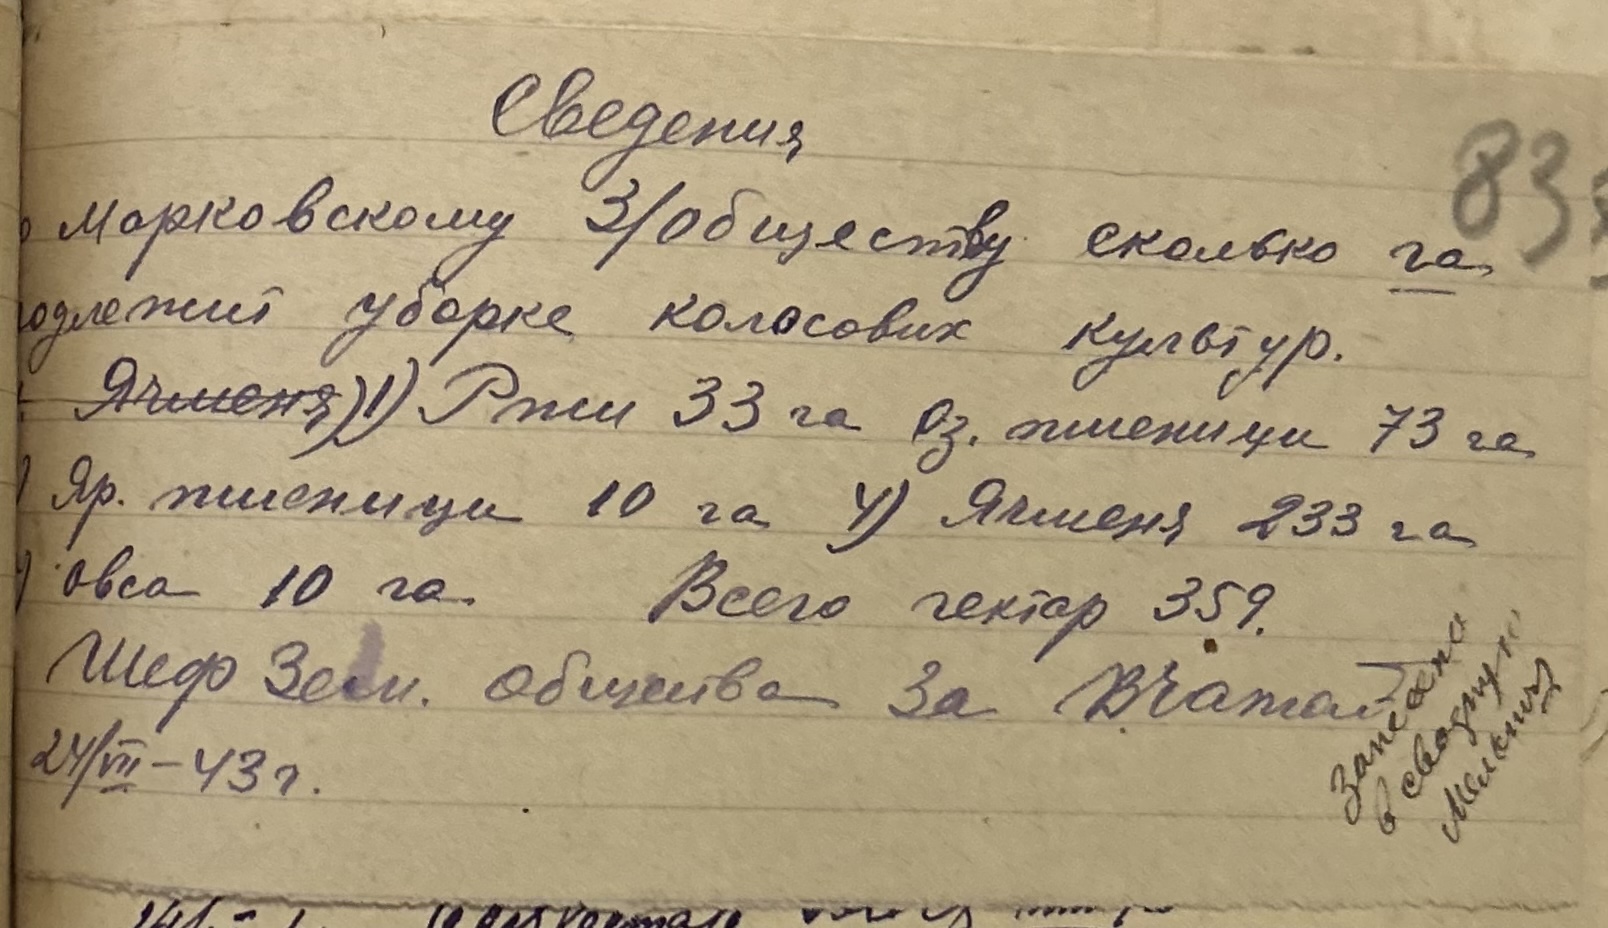 Сведения
83
о Марковскому З/обществу сколько га
подлежит уборке колосових культур.
Ячменя) 1) Ржи 33 га Оз. пшеници 73 га
) Яр. пшеници 10 га 4) Ячменя 233 га
) овса 10 га Всего гектар 359.
Шеф Зем. общества За
24/VII – 43 г.
Записано
в сводную